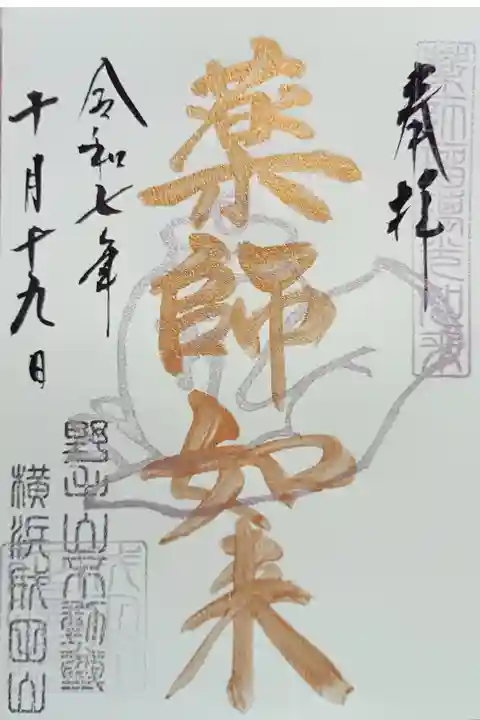 奉拝
薬師如来
令和七年
十月十九日
野毛山不動尊
横浜成田山